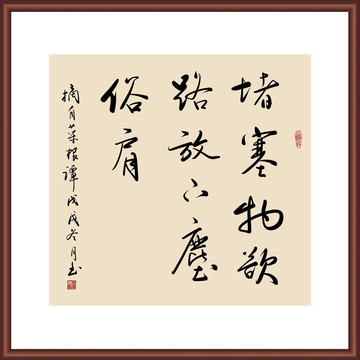 堵塞物欲
路放下塵
俗肩
摘自菜根譚戊戌冬月书